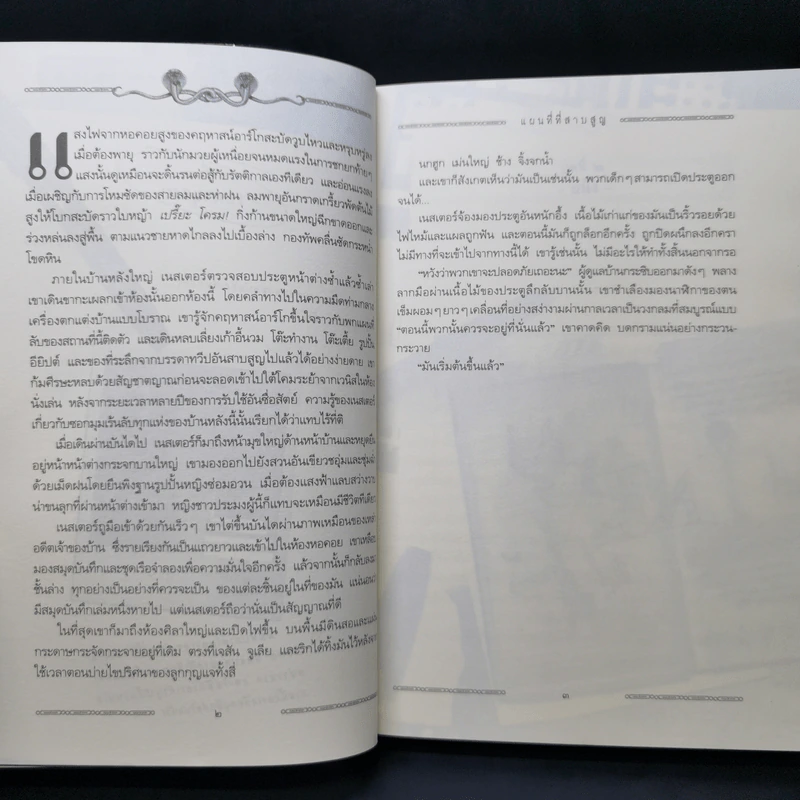 แสงไฟจากหอคอยสูงของคฤหาสน์อาร์โกสะบัดวูบไหวและหรุบหรู่ลง
เมื่อต้องพายุ ราวกับนักมวยผู้เหนื่อยจนหมดแรงในการชกยกท้ายๆ
แสงนั้นดูเหมือนจะดิ้นรนต่อสู้กับรัตติกาลเองทีเดียว และอ่อนแรงลง
เมื่อเผชิญกับการโหมซัดของสายลมและห่าฝน ลมพายุอันกราดเกรี้ยวพัดต้นไม้
สูงให้โบกสะบัดราวใบหญ้า เปรี๊ยะ โครม! กิ่งก้านขนาดใหญ่ฉีกขาดออกและ
ร่วงหล่นลงสู่พื้น ตามแนวชายหาดไกลลงไปเบื้องล่าง กองทัพคลื่นซัดกระหน่ำ
โขดหิน
ภายในบ้านหลังใหญ่ เนสเตอร์ตรวจสอบประตูหน้าต่างซ้ำแล้วซ้ำเล่า
เขาเดินขากะเผลกเข้าห้องนั้นออกห้องนี้ โดยคลำทางไปในความมืดท่ามกลาง
เครื่องตกแต่งบ้านแบบโบราณ เขารู้จักคฤหาสน์อาร์โกขึ้นใจราวกับพกแผนผัง
ลับของสถานที่นี้ติดตัว และเดินหลบเลี่ยงเก้าอี้นวม โต๊ะทำงาน โต๊ะเตี้ย รูปปั้น
อียิปต์ และของที่ระลึกจากบรรดาทวีปอันสาบสูญไปแล้วได้อย่างง่ายดาย เขา
ก้มศีรษะหลบด้วยสัญชาตญาณก่อนจะลอดเข้าไปใต้โคมระย้าจากเวนิสในห้อง
นั่งเล่น หลังจากระยะเวลาหลายปีของการรับใช้อันซื่อสัตย์ ความรู้ของเนสเตอร์
เกี่ยวกับซอกมุมเร้นลับทุกแห่งของบ้านหลังนี้นั้นเรียกได้ว่าแทบไร้ที่ติ
เมื่อเดินผ่านบันไดไป เนสเตอร์ก็มาถึงหน้ามุขใหญ่ด้านหน้าบ้านและหยุดยืน
อยู่หน้าหน้าต่างกระจกบานใหญ่ เขามองออกไปยังสวนอันเขียวชอุ่มและชุ่มฉ่ำ
ด้วยเม็ดฝนโดยยืนพิงฐานรูปปั้นหญิงซ่อมอวน เมื่อต้องแสงฟ้าแลบสว่างวาบ
น่าขนลุกที่ผ่านหน้าต่างเข้ามา หญิงชาวประมงผู้นี้ก็แทบจะเหมือนมีชีวิตทีเดียว
เนสเตอร์ถูมือเข้าด้วยกันเร็วๆ เขาไต่ขึ้นบันไดผ่านภาพเหมือนของเหล่า
อดีตเจ้าของบ้าน ซึ่งรายเรียงกันเป็นแถวยาวและเข้าไปในห้องหอคอย เขาเหลือบ
มองสมุดบันทึกและชุดเรือจำลองเพื่อความมั่นใจอีกครั้ง แล้วจากนั้นก็กลับลงมา
ชั้นล่าง ทุกอย่างเป็นอย่างที่ควรจะเป็น ของแต่ละชิ้นอยู่ในที่ของมัน แน่นอนว่า
มีสมุดบันทึกเล่มหนึ่งหายไป แต่เนสเตอร์ถือว่านั่นเป็นสัญญาณที่ดี
ในที่สุดเขาก็มาถึงห้องศิลาใหญ่และเปิดไฟขึ้น บนพื้นมีดินสอและแผ่น
กระดาษกระจัดกระจายอยู่ที่เดิม ตรงที่เจสัน จูเลีย และริกได้ทิ้งมันไว้หลังจาก
ใช้เวลาตอนบ่ายไขปริศนาของลูกกุญแจทั้งสี่
๒
แผนที่ที่สาบสูญ
นกฮูก เม่นใหญ่ ช้าง จิ้งจกน้ำ
และเขาก็สังเกตเห็นว่ามันเป็นเช่นนั้น พวกเด็กๆ สามารถเปิดประตูออก
จนได้...
เนสเตอร์จ้องมองประตูอันหนักอึ้ง เนื้อไม้เก่าแก่ของมันเป็นริ้วรอยด้วย
ไฟไหม้และแผลถูกฟัน และตอนนี้มันก็ถูกล็อกอีกครั้ง ถูกปิดผนึกลงอีกครา
ไม่มีทางที่จะเข้าไปจากทางนี้ได้ เขารู้เช่นนั้น ไม่มีอะไรให้ทำทั้งสิ้นนอกจากรอ
“หวังว่าพวกเขาจะปลอดภัยเถอะนะ” ผู้ดูแลบ้านกระซิบออกมาดังๆ พลาง
ลากมือผ่านเนื้อไม้ของประตูลึกลับบานนั้น เขาชำเลืองมองนาฬิกาของตน
เข็มผอมๆ ยาวๆ เคลื่อนที่อย่างสง่างามผ่านกาลเวลาเป็นวงกลมที่สมบูรณ์แบบ
“ตอนนี้พวกนั้นควรจะอยู่ที่นั่นแล้ว” เขาคาดคิด บดกรามแน่นอย่างกระวน-
กระวาย
“มันเริ่มต้นขึ้นแล้ว”
๓